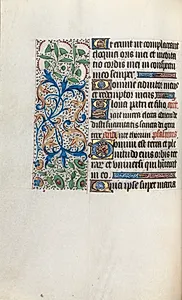 Et erunt ut complaceant
eloquia oris mei et medita
tio cordis mei in conspectu
tuo semper
Domine adiutor meus
et redemptor meus
Gloria patri et filio
mirra electa odorem de
disti suavitatis sancta dei geni
trix thorum psalmus
Domini est terra et ple
nitudo eius orbis ter
rar et universi qui habitant
in eo
Quia ipse super maria